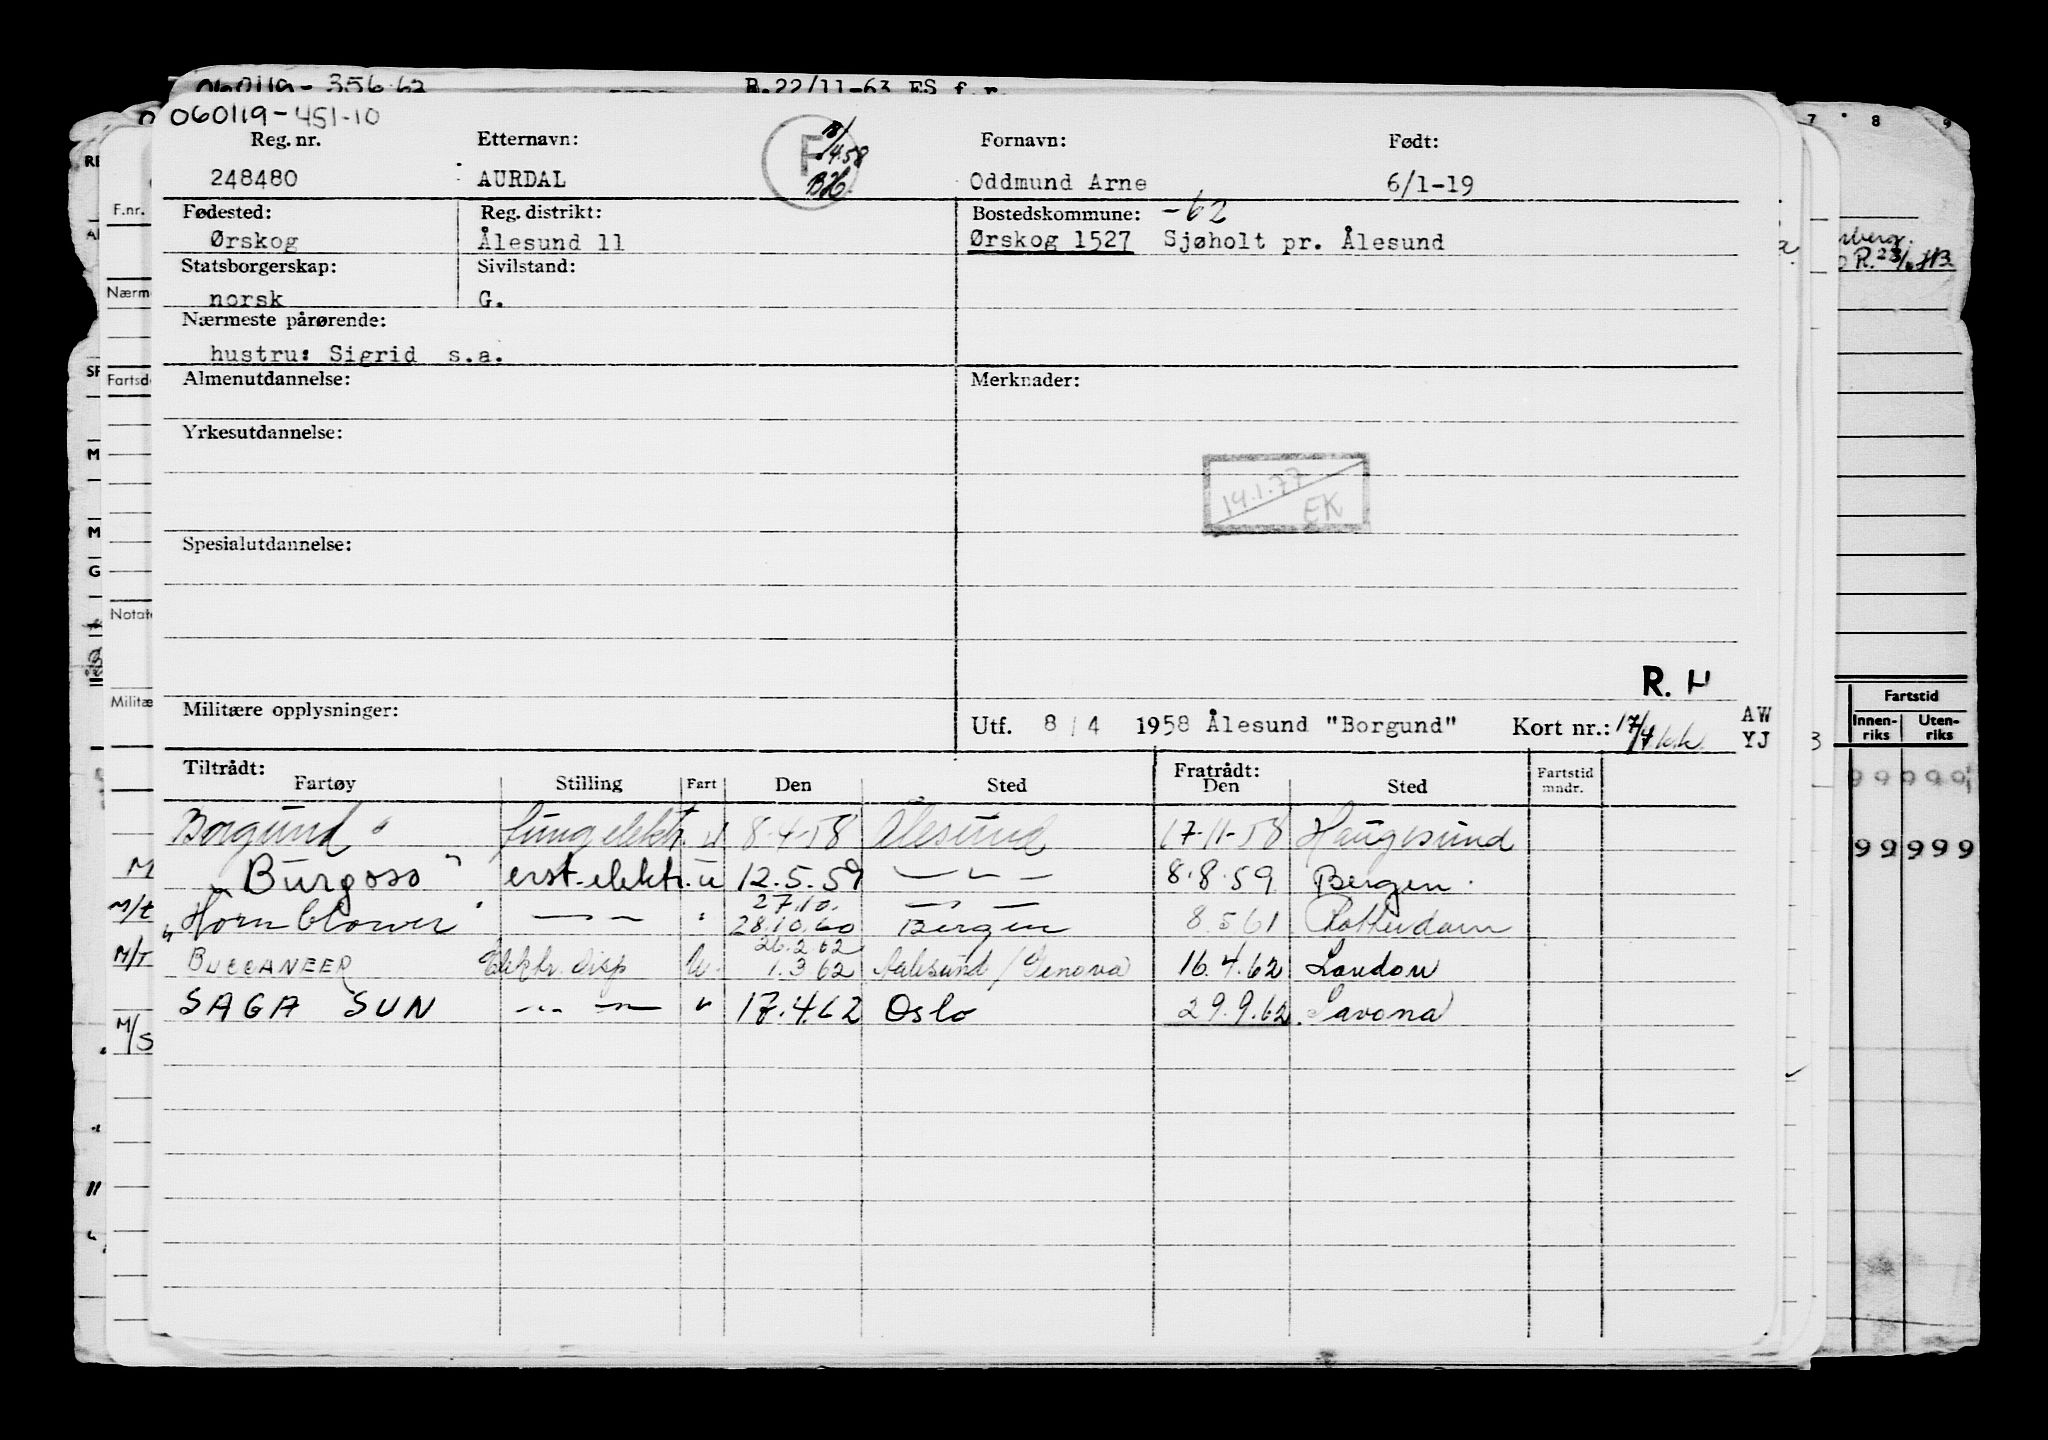 060119-356.62 R.22/11-63 ES f.r.
060119-451-10
Reg. nr. Etternavn: Fornavn: Født:
248480 AURDAL F 4.58 BH Oddmund Arne 6/1-19
Fødested: Reg. distrikt: Bostedskommune: -62
Ørskog Ålesund 11 Ørskog 1527 Sjøholt pr. Ålesund
Statsborgerskap: Sivilstand:
norsk G.
Nærmeste pårørende:
hustru: Sigrid s.a.
Almenutdannelse: Merknader:
Yrkesutdannelse:
14.1.77
EK
Spesialutdannelse:
R. H
Militære opplysninger: Utf. 8/4 1958 Ålesund "Borgund" Kort nr.: 17/4 k.k. AW
YJ
Tiltrådt: Fratrådt: Fartstid
Fartøy Stilling Fart Den Sted Den Sted mndr.
Borgund " fung elektr. u 8.4.58 Ålesund 17.11.58 Haugesund
M "Burgoss" erst. elektr. u 12.5.59 — " — 8.8.59 Bergen.
27.10. — " —
M/t "Hornblower" — " — " 28.10.60 Bergen 8.5.61 Rotterdam
26.2.62
M/T BUCCANEER Elektr. disp U. 1.3.62 Aalesund / Genova 16.4.62 London
SAGA SUN — " — " 17.4.62 Oslo 29.9.62 Savona
M/S
F.nr.
Nærme
Fartsd
Notate
Militæ
7 8 9
R. 23/6 HB
Fartstid
Innen-
riks Uten-
riks
9 9 9 9 9
9 9 9 9 9